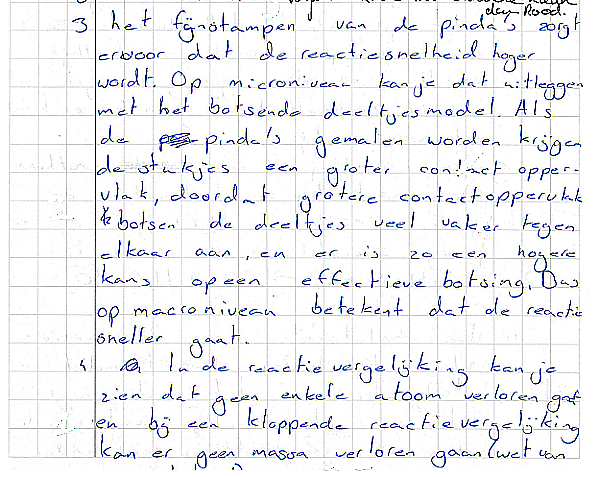 day Rood.
3 het fijnstampen van de pinda's zorgt
ervoor dat de reactiesnelheid hoger
wordt. Op microniveau kan je dat uitleggen
met het botsende deeltjesmodel. Als
de pinda's gemalen worden krijgen
de stukjes een groter contact opper-
vlak, doordat grotere contactoppervlak
botsen de deeltjes veel vaker tegen
elkaar aan, en er is zo een hogere
kans op een effectieve botsing. Dus
op macroniveau betekent dat de reactie
sneller gaat.
4 a In de reactievergelijking kan je
zien dat geen enkele atoom verloren gaat
en bij een kloppende reactievergelijking
kan er geen massa verloren gaan (wet van